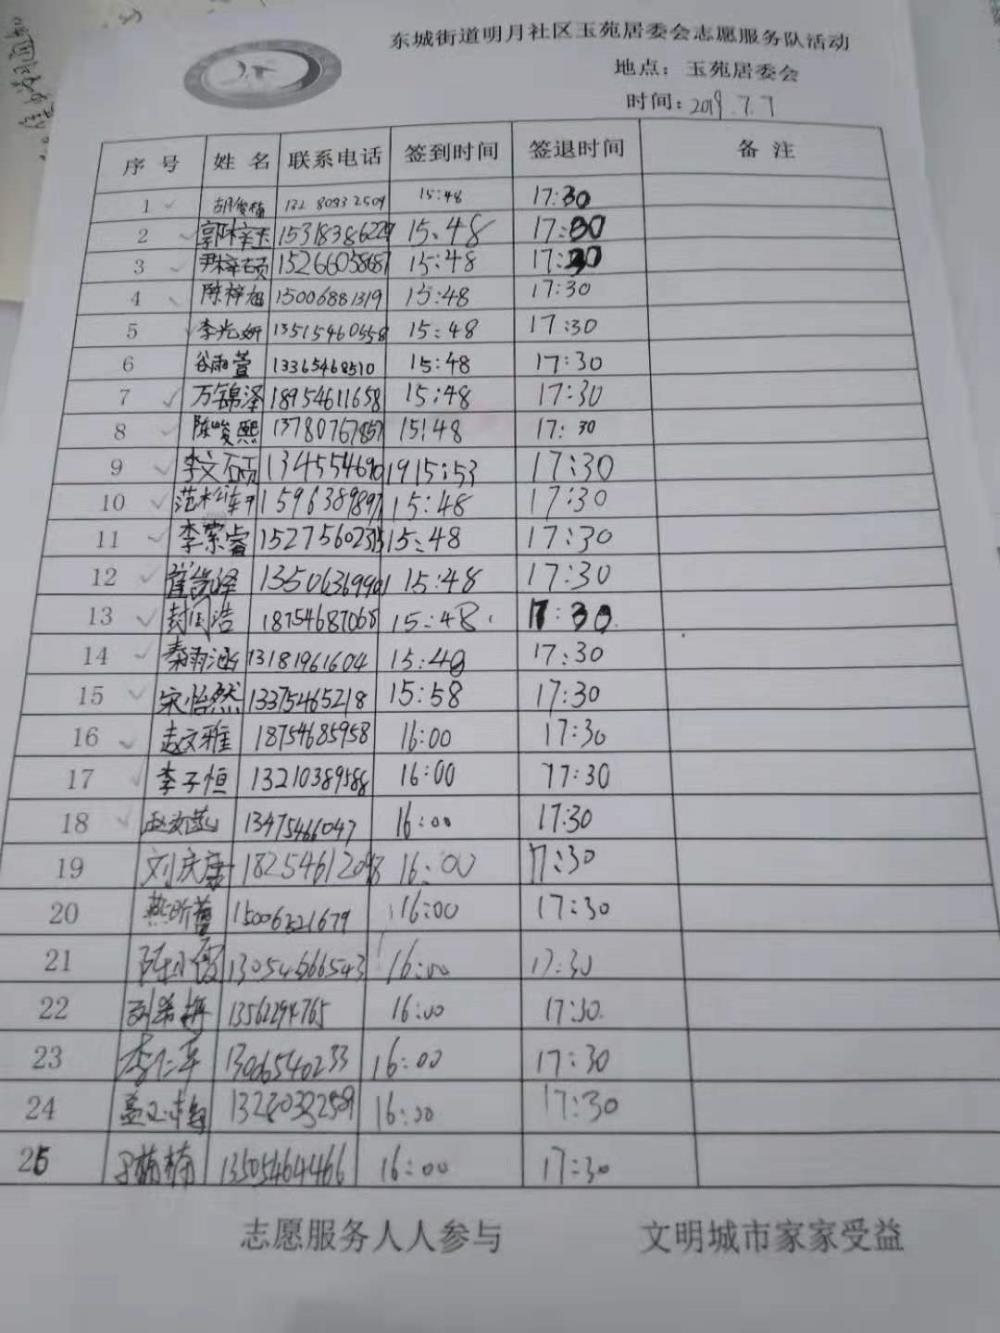 东城街道明月社区玉苑居委会志愿服务队活动
地点：玉苑居委会
时间：2019.7.7
序号 姓名 联系电话 签到时间 签退时间 备注
1 15:48 17:30
2 15318386229 15.48 17:30
3 15266058687 15:48 17:30
4 陈梓旭 15006881319 15:48 17:30
5 李光妍 13515460558 15:48 17:30
6 谷雨萱 13365468510 15:48 17:30
7 万锦泽 18954611658 15:48 17:30
8 陈峻熙 13780767857 15:48 17:30
9 李文硕 15:53 17:30
10 1596389897 15:48 17:30
11 李 睿 15:48 17:30
12 15:48 17:30
13 封闰浩 18754687068 15:48 17:30
14 秦雨涵 13181961604 15:48 17:30
15 宋怡然 13375465218 15:58 17:30
16 孟文雅 18754685958 16:00 17:30
17 李子恒 13210389588 16:00 17:30
18 13475466047 16:00 17:30
19 刘庆康 16:00 17:30
20 燕昕蕾 15006321679 16:00 17:30
21 13054666543 16:00 17:30
22 13561294765 16:00 17:30
23 1306540233 16:00 17:30
24 13280332509 16:00 17:30
25 13505464466 16:00 17:30
志愿服务人人参与 文明城市家家受益